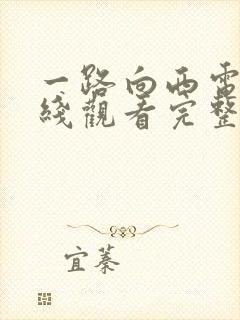 一路向西電
綫觀看完整
宜蓁